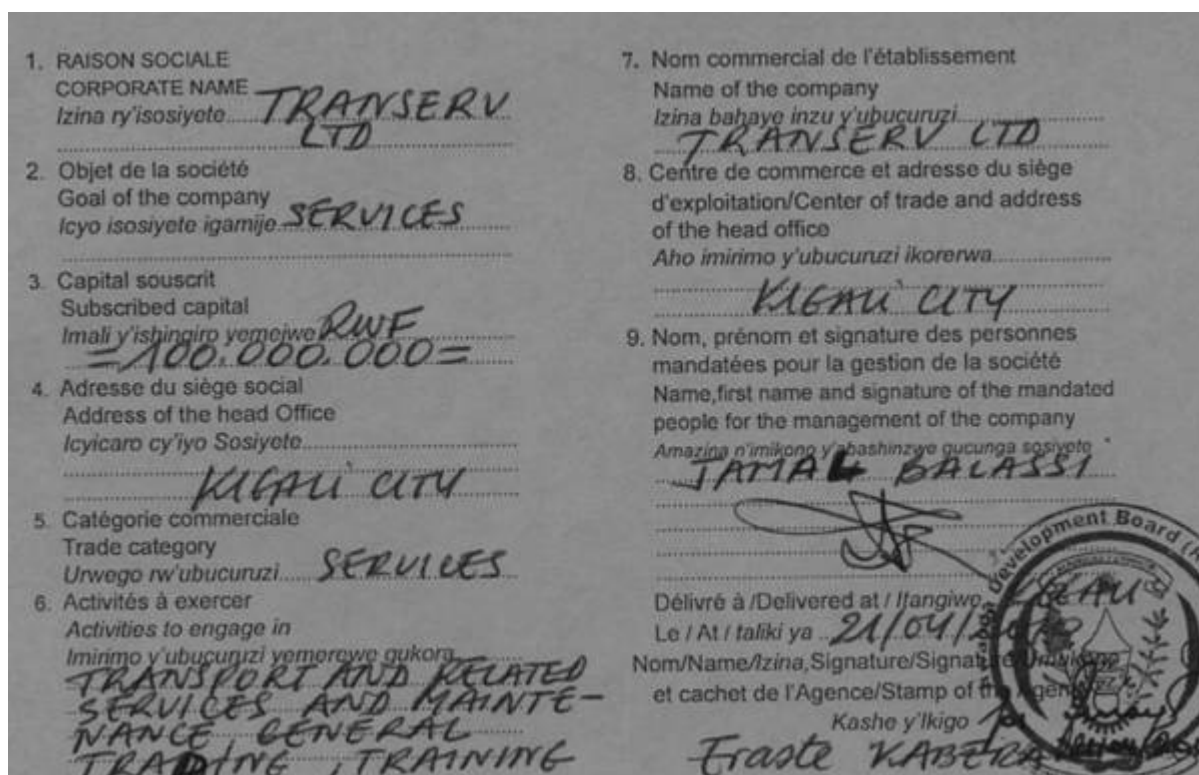 1. RAISON SOCIALE
CORPORATE NAME
Izina ry'isosiyete TRANSERV
LTD
2. Objet de la société
Goal of the company
Icyo isosiyete igamije SERVICES
3. Capital souscrit
Subscribed capital
Imali y'ishingiro yemejwe RWF
=100.000.000=
4. Adresse du siège social
Address of the head Office
Icyicaro cy'iyo Sosiyete
KIGALI CITY
5. Catégorie commerciale
Trade category
Urwego rw'ubucuruzi SERVICES
6. Activités à exercer
Activities to engage in
Imirimo y'ubucuruzi yemerewe gukora
TRANSPORT AND RELATED
SERVICES AND MAINTE-
NANCE, GENERAL
TRADING, TRAINING
7. Nom commercial de l'établissement
Name of the company
Izina bahaye inzu y'ubucuruzi
TRANSERV LTD
8. Centre de commerce et adresse du siège
d'exploitation/Center of trade and address
of the head office
Aho imirimo y'ubucuruzi ikorerwa
KIGALI CITY
9. Nom, prénom et signature des personnes
mandatées pour la gestion de la société
Name,first name and signature of the mandated
people for the management of the company
Amazina n'imikono y'abashinzwe gucunga sosiyete
JAMAL BALASSI
Development Board
Délivré à /Delivered at / Itangiwe KIGALI
Le / At / taliki ya 21/04/
Nom/Name/Izina,Signature/Signature
et cachet de l'Agence/Stamp of the Agency
Kashe y'Ikigo
Eraste KABERA